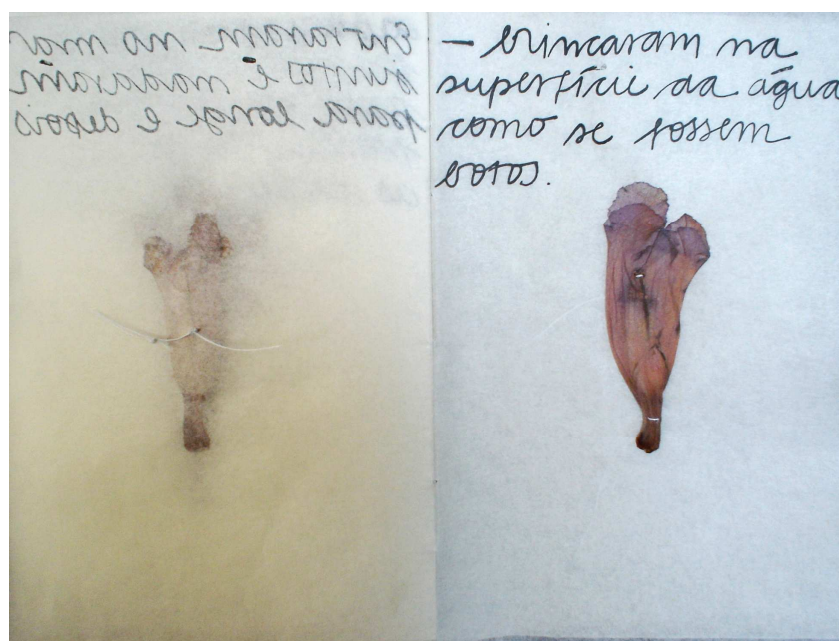 Entraram no mar
juntos e nadaram
para longe e depois
– brincaram na
superfície da água
como se fossem
botos.